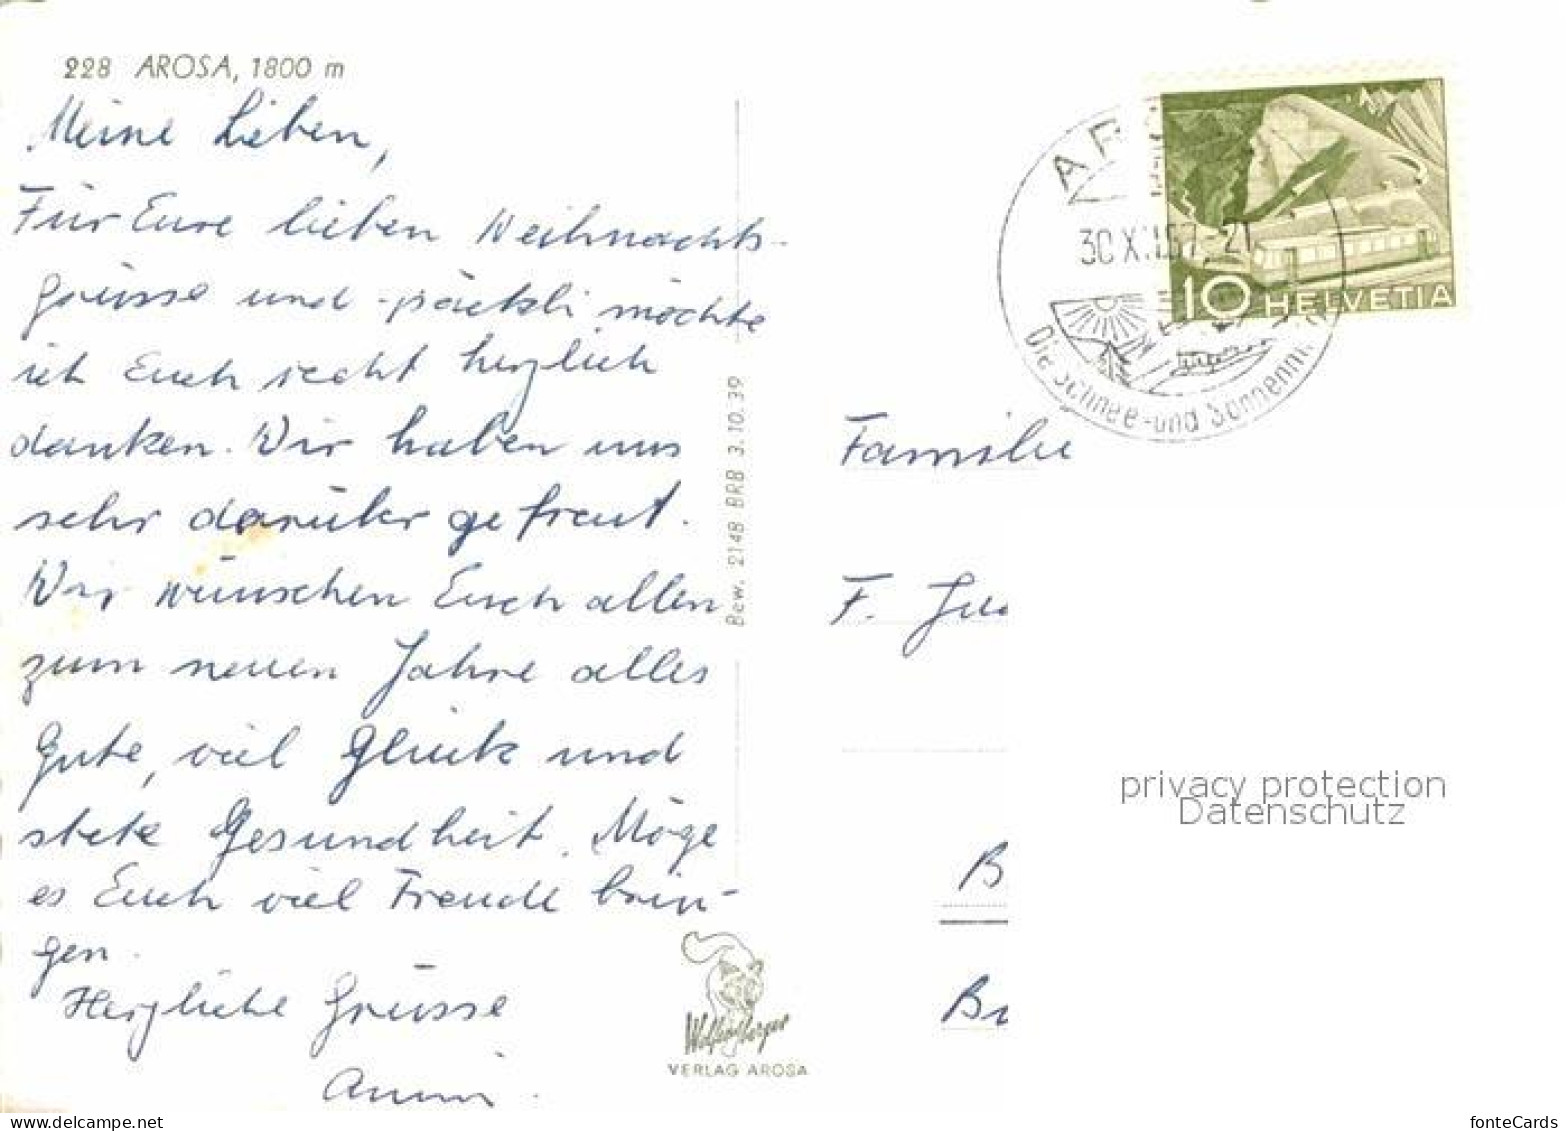 228 AROSA, 1800 m
Meine Lieben,
Für Eure lieben Weihnachts-
grüsse und -päckli möchte
ich Euch recht herzlich
danken. Wir haben uns
sehr darüber gefreut.
Wir wünschen Euch allen
zum neuen Jahre alles
Gute, viel Glück und
stete Gesundheit. Möge
es Euch viel Freude brin-
gen.
Herzliche Grüsse
Bew. 2148 BRB 3.10.39
Wolfensberger
VERLAG AROSA
10 HELVETIA
Die Schnee- und
Familie
F.
B
privacy protection
Datenschutz
delcampe.net
fonteCards